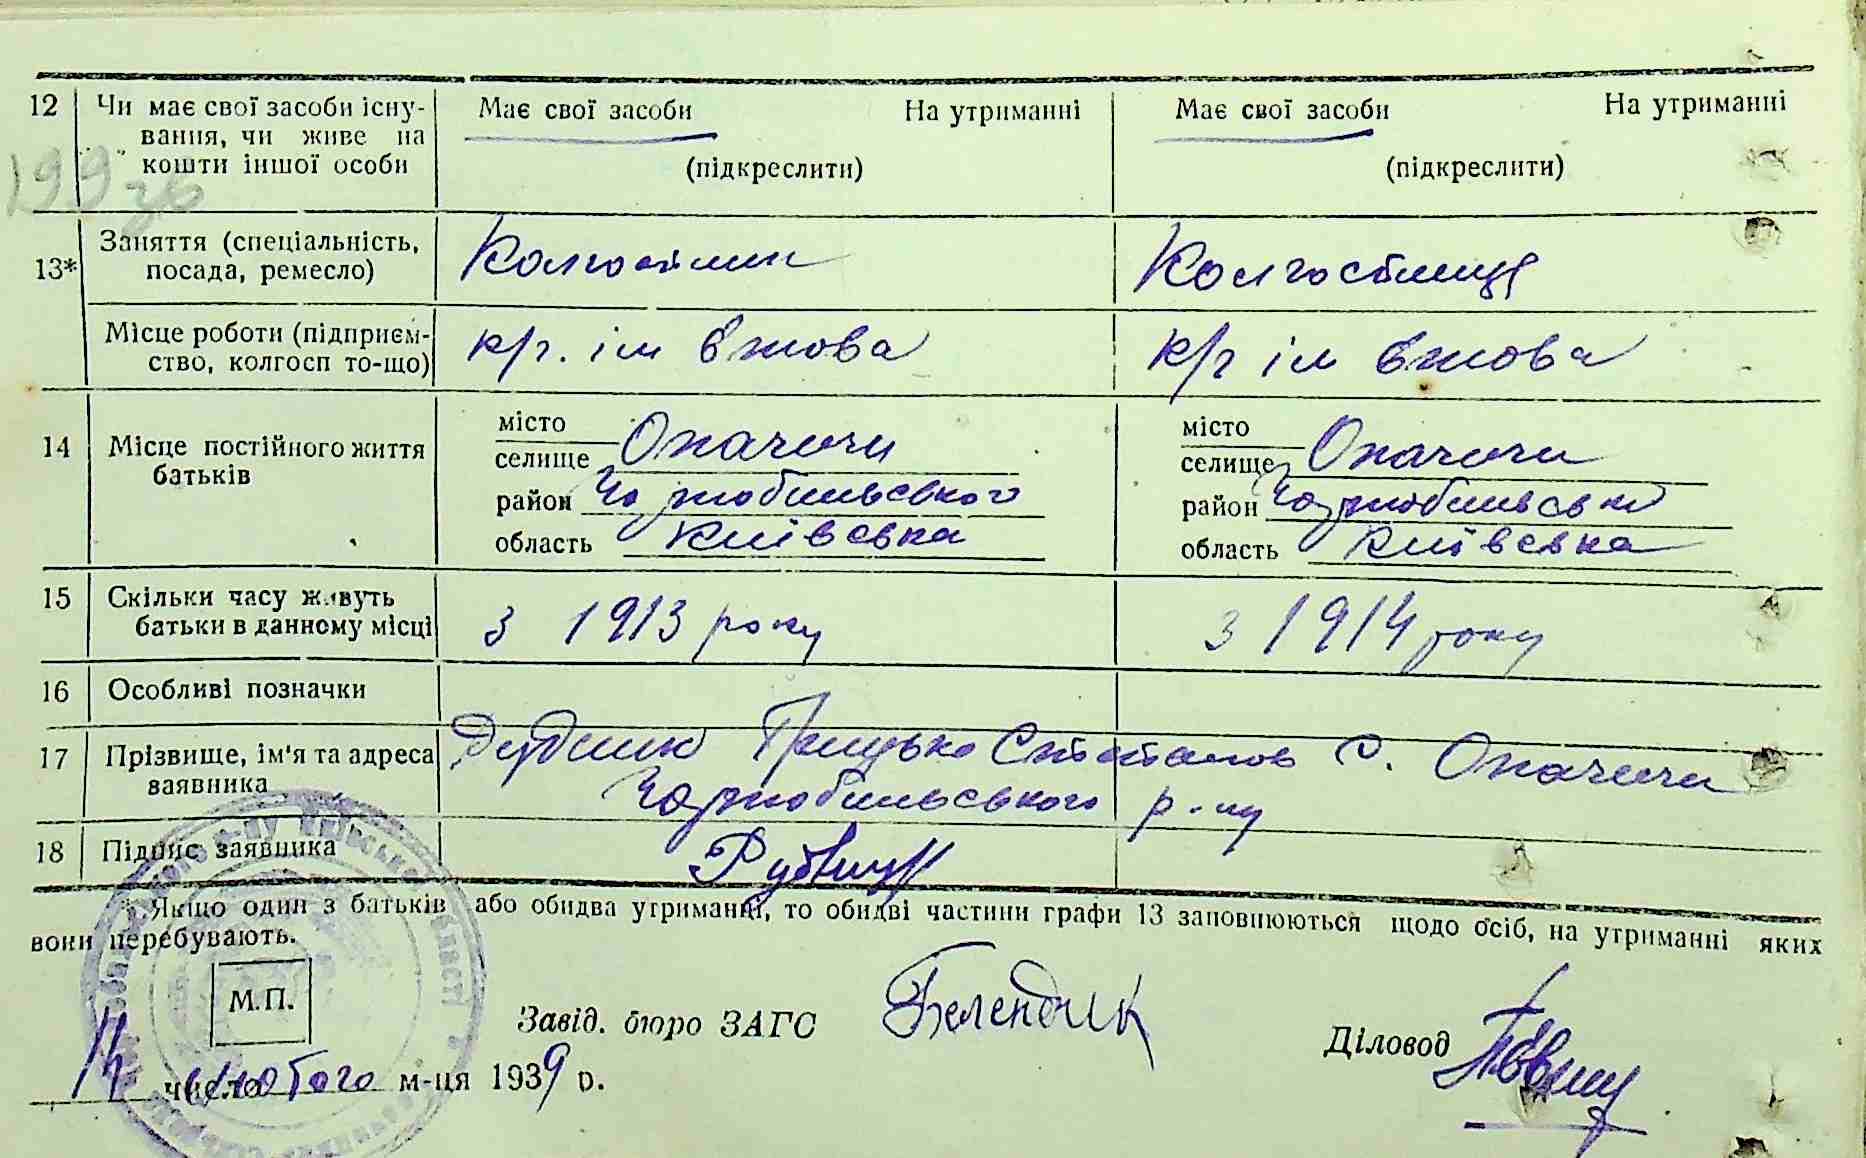 12 Чи має свої засоби існу- Має свої засоби На утриманні Має свої засоби На утриманні
вання, чи живе на
кошти іншої особи (підкреслити) (підкреслити)
199
36
Заняття (спеціальність, Колгоспник Колгоспниця
13* посада, ремесло)
Місце роботи (підприєм- к/г. ім Єжова к/г ім Єжова
ство, колгосп то-що)
місто місто
14 Місце постійного життя селище Опачичи селище Опачичи
батьків район Чорнобильського район Чорнобильськи
область Київська область Київська
15 Скільки часу живуть з 1913 року з 1914 року
батьки в данному місці
16 Особливі позначки
17 Прізвище, ім'я та адреса Грицько Степанов с. Опачичи
заявника Чорнобильського р-ну
18 Підпис заявника
* Якщо один з батьків або обидва утриманні, то обидві частини графи 13 заповнюються щодо осіб, на утриманні яких
вони перебувають.
М.П.
Завід. бюро ЗАГС Белендик Діловод
14 число лютого м-ця 1939 р.